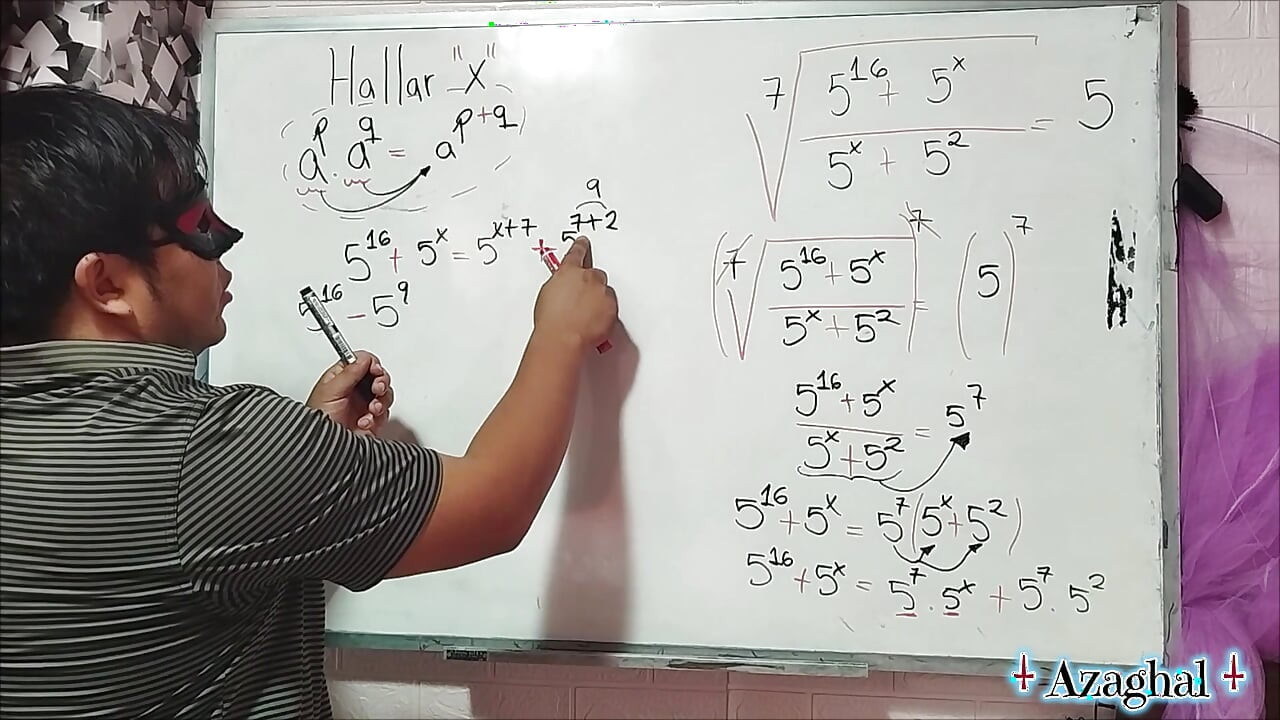 Hallar "x"
a^p . a^q = a^(p+q)
5^16 + 5^x = 5^(x+7) + 5^(7+2)
9
5^16 - 5^9
⁷√((5^16 + 5^x)/(5^x + 5^2)) = 5
(⁷√((5^16 + 5^x)/(5^x + 5^2)))^7 = (5)^7
(5^16 + 5^x)/(5^x + 5^2) = 5^7
5^16 + 5^x = 5^7(5^x + 5^2)
5^16 + 5^x = 5^7 . 5^x + 5^7 . 5^2
Azaghal